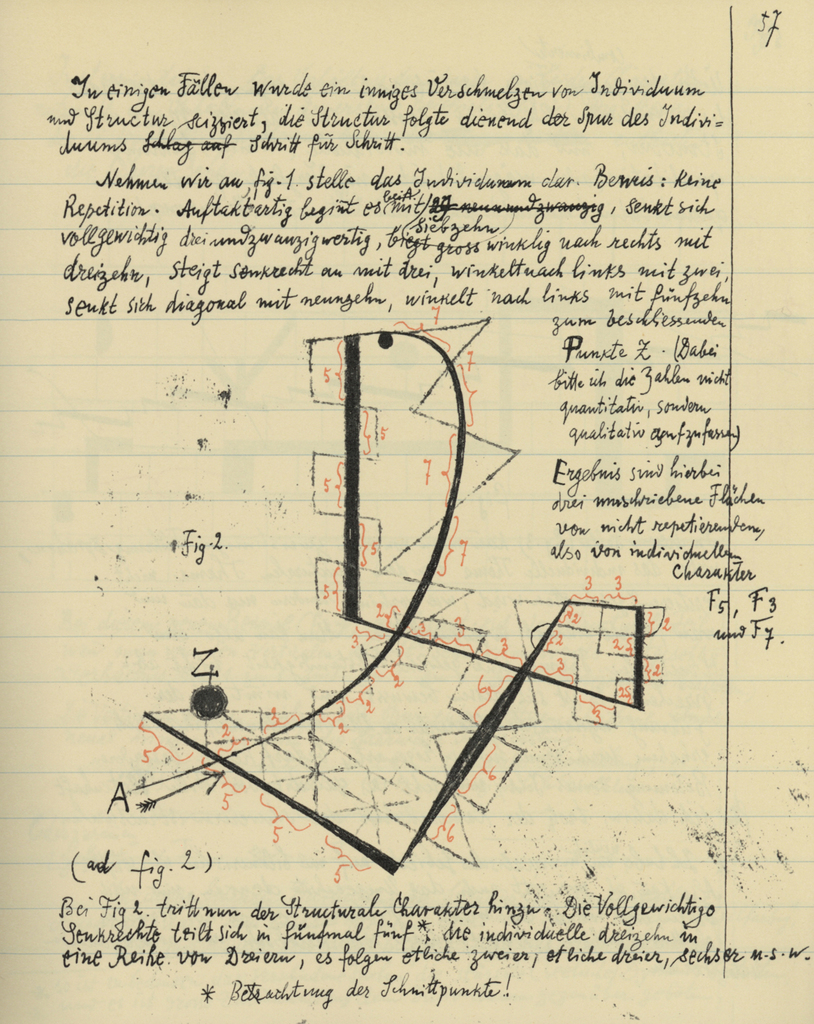 57
In einigen Fällen wurde ein inniges Verschmelzen von Individuum
und Structur scizziert, die Structur folgte dienend der Spur des Indivi=
duums Schlag auf Schritt für Schritt.
Nehmen wir an, fig. 1. stelle das Individuum dar. Beweis: keine
Repetition. Auftaktartig begint es bei A mit 27 neunundzwanzig, senkt sich
vollgewichtig dreiundzwanzigwertig, biegt gross (siebzehn) winklig nach rechts mit
dreizehn, steigt senkrecht an mit drei, winkelt nach links mit zwei,
senkt sich diagonal mit neunzehn, winkelt nach links mit fünfzehn
zum beschliessenden
Punkte Z. (Dabei
bitte ich die Zahlen nicht
quantitativ, sondern
qualitativ aufzufassen)
Ergebnis sind hierbei
drei umschriebene Flächen
von nicht repetierendem,
also von individuellem
Charakter
F5, F3
und F7.
7
7
5
5
7
5
Fig. 2.
5
7
5
3
3
2
3
3
3
2
2
2
3
3
2
2
2
2
3
6
Z
2
2
2
2
5
A
5
6
5
6
5
(ad fig. 2)
Bei Fig 2. tritt nun der Structurale Charakter hinzu. Die Vollgewichtige
Senkrechte teilt sich in fünfmal fünf*, die individuelle dreizehn in
eine Reihe von Dreiern, es folgen etliche zweier, etliche dreier, sechser u.s.w.
* Betrachtung der Schnittpunkte!